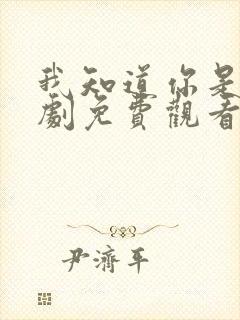 我知道你是
劇免費觀看
尹濟平